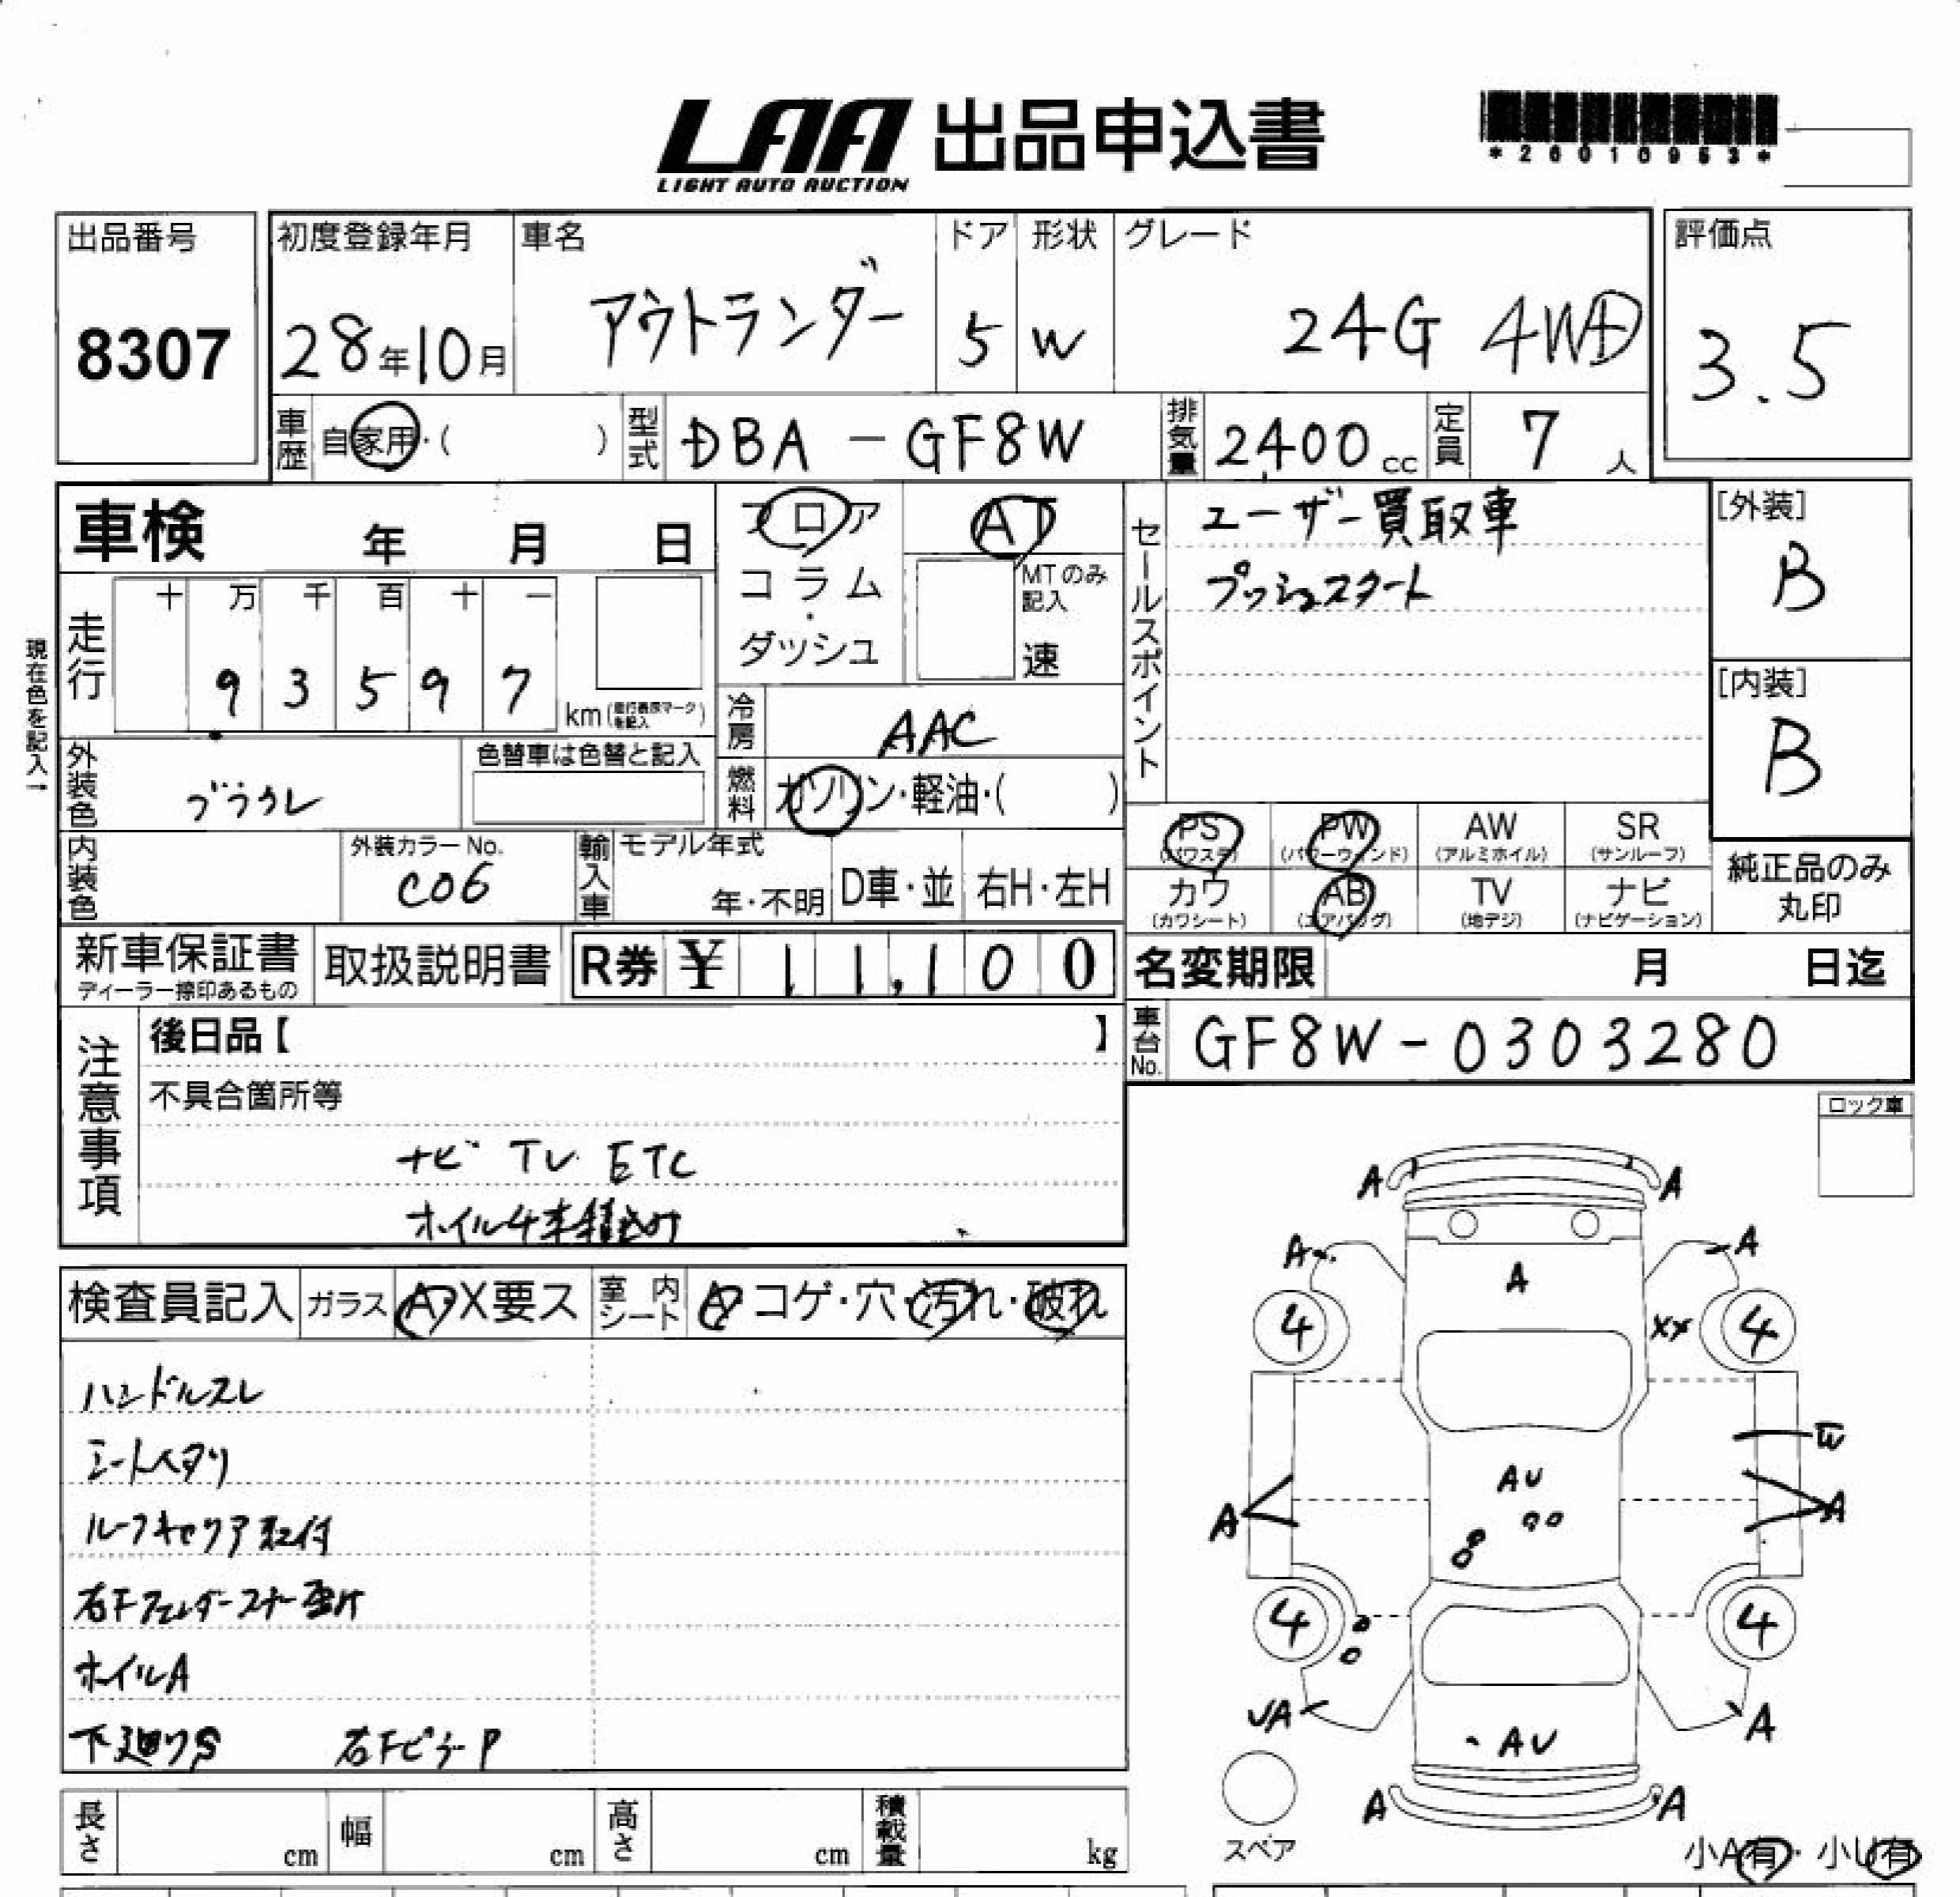 LAA 出品申込書
LIGHT AUTO AUCTION
*26010953*
出品番号
8307
初度登録年月
28年10月
車名
アウトランダー
ドア
5
形状
W
グレード
24G 4WD
評価点
3.5
車歴 自家用・( )
型式 DBA-GF8W
排気量 2400 cc
定員 7人
車検 年 月 日
フロア
コラム
・
ダッシュ
AT
MTのみ
記入
速
セールスポイント
ユーザー買取車
プッシュスタート
[外装]
B
[内装]
B
現在色を記入→
走行
十 万 千 百 十 一
9 3 5 9 7
km(走行表示マークを記入)
冷房 AAC
外装色 ブラウン
色替車は色替と記入
燃料 ガソリン・軽油・( )
内装色
外装カラーNo.
C06
輸入車
モデル年式
年・不明
D車・並
右H・左H
PS
(パワステ)
PW
(パワーウィンド)
AW
(アルミホイル)
SR
(サンルーフ)
カワ
(カワシート)
AB
(エアバッグ)
TV
(地デジ)
ナビ
(ナビゲーション)
純正品のみ
丸印
新車保証書
ディーラー捺印あるもの
取扱説明書
R券 ¥ 11,100
名変期限 月 日迄
車台No. GF8W-0303280
注意事項
後日品【 】
不具合箇所等
ナビ TV ETC
ホイル4本積込み
ロック車
検査員記入
ガラス A・X要ス
室内シート A・コゲ・穴・汚れ・破れ
ハンドルスレ
シートヘタリ
ルーフキャリア取付
右Fフェンダーステー曲り
ホイルA
下廻りS 右FピラーP
A A
A A
A
4 XX 4
W
AU
A A
4 4
UA A
AU
A A
スペア
小A有・小U有
長さ cm
幅 cm
高さ cm
積載量 kg